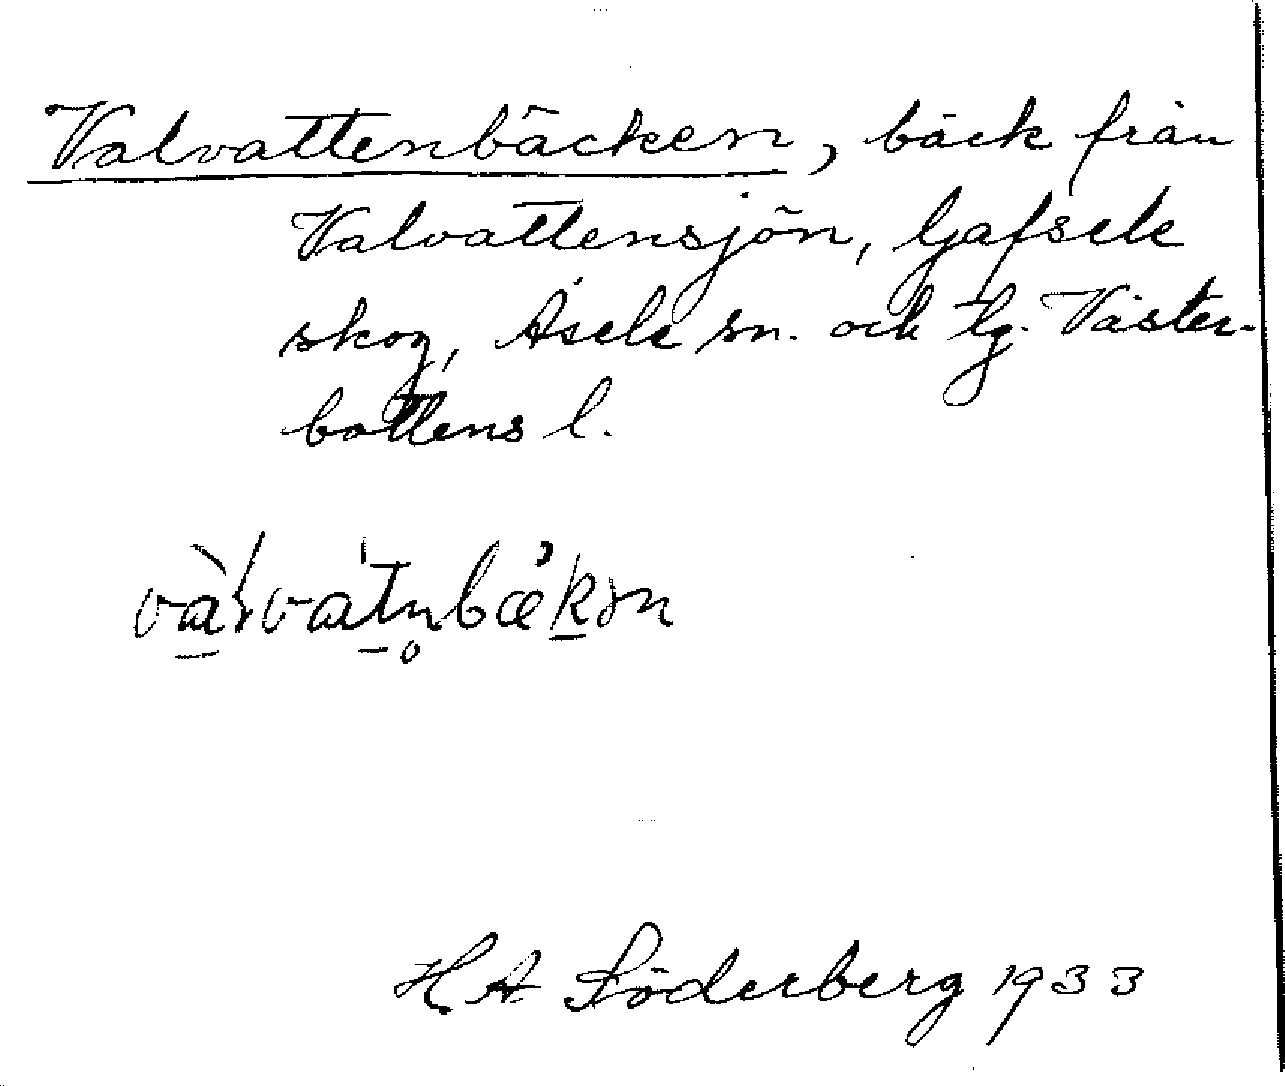 Valvattenbäcken, bäck från
Valvattensjön, Gafsele
skog, Åsele sn. och tg. Väster-
bottens l.
H. A Söderberg 1933